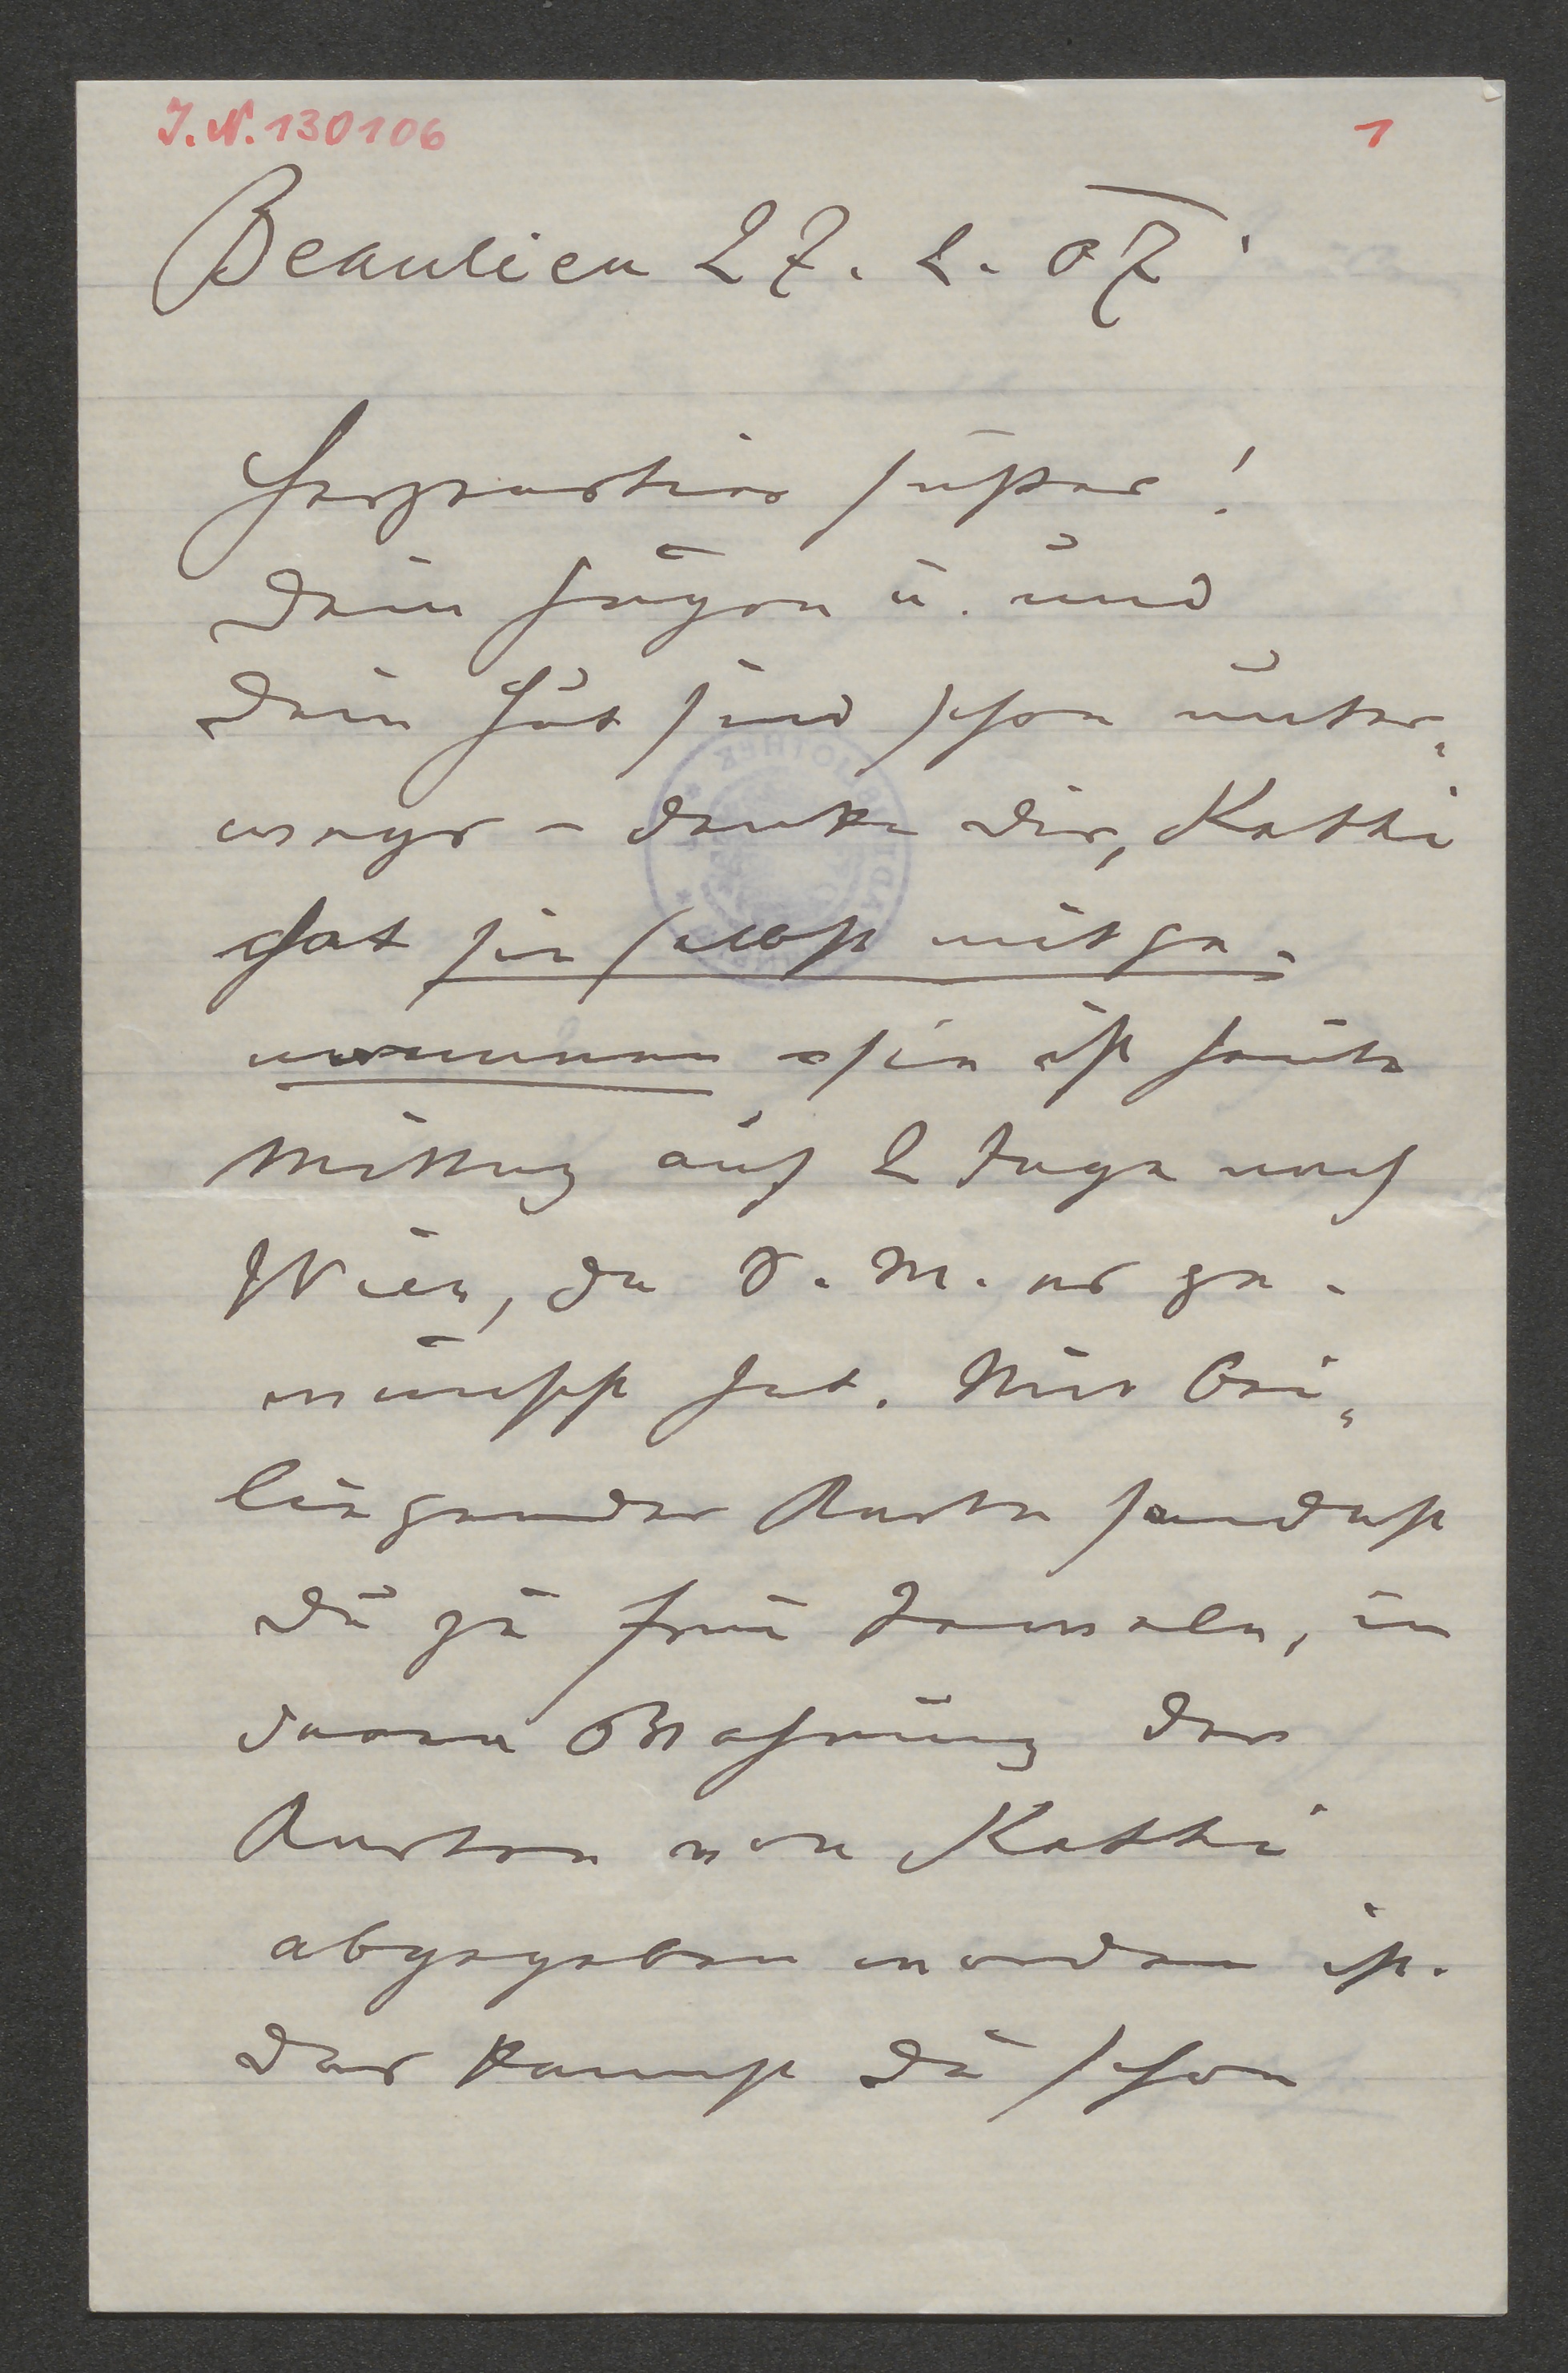 J. N. 130106
1
Beaulieu 27. 2. 07.
süßer!
Dein u. und
Dein Hut sind schon unter-
wegs – denke Dir, Kathi
hat sie selbst mitge-
nommen – sie ist heute
Mittag auf 2 Tage nach
Wien, da S. M. es ge-
wünscht hat. Mit bei-
liegender Karte sendest
Du zu Frau, in
deren Wohnung der
Karton von Kathi
abgegeben worden ist.
Das kannst Du schon